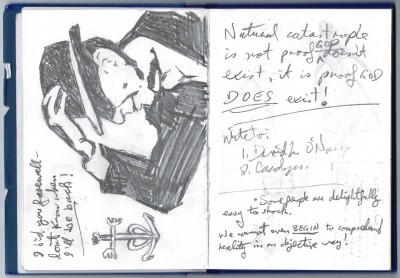 I bid you farewell -
don't know when
I'll be back!
Natural catastrophe
is not proof GOD doesn't
exist, it is proof GOD
DOES exit!
write to:
1. David
2. Carolyn
• Some people are delightfully
easy to shock.
We cannot even BEGIN to comprehend
reality in an objective way!